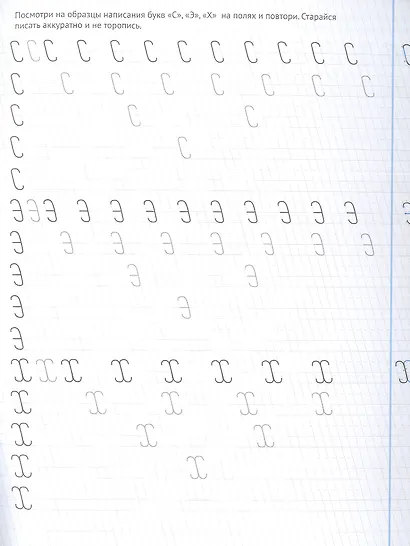 Посмотри на образцы написания букв «С», «Э», «Х» на полях и повтори. Старайся
писать аккуратно и не торопись.
С С С С С С С С С С С С
С С С С С С С С
С С С
С С
С
Э Э Э Э Э Э Э Э Э Э Э Э
Э Э Э Э Э Э Э Э
Э Э Э
Э Э
Э
Х Х Х Х Х Х Х Х Х
Х Х Х Х Х
Х Х Х
Х Х
Х